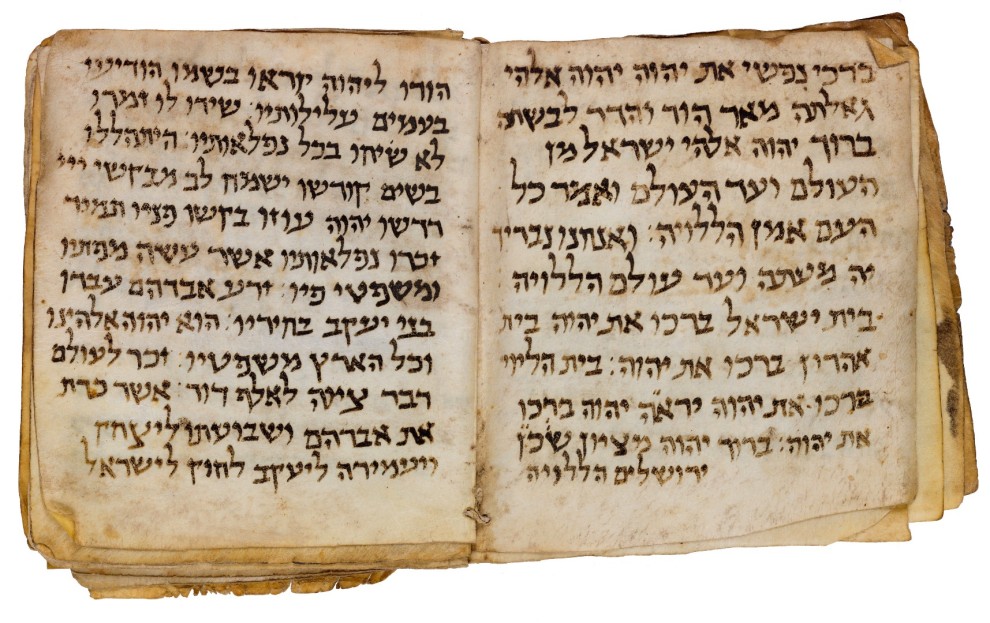 ברכי נפשי את יהוה יהוה אלהי
גאלתה מאד הוד והדר לבשתה
ברוך יהוה אלהי ישראל מן
העולם ועד העולם ואמר כל
העם אמן הללויה׃ ואנחנו נבריך
יה מעתה ועד עולם הללויה
בית ישראל ברכו את יהוה בית
אהרון ברכו את יהוה׃ בית הליוי
ברכו את יהוה יראה יהוה ברכו
את יהוה׃ ברוך יהוה מציון שכן
ירושלים הללויה
הודו ליהוה קראו בשמו הודיעו
בעמים עלילותיו׃ שירו לו זמרו
לא שיחו בכל נפלאותיו׃ היתהללו
בשים קודשו ישמח לב מבקשי ייי
דרשו יהוה עוזו בקשו פניו תמיד
זכרו נפלאותיו אשר עשה מפתיו
ומשפטי פיו׃ זרע אברהם עבדו
בני יעקב בחיריו׃ הוא יהוה אלהינו
וכל הארץ משפטיו׃ זכר לעולם
דבר ציוה לאלף דור׃ אשר כרת
את אברהם ושבועתו ליצחק
ויעמירה ליעקב לחוק לישראל